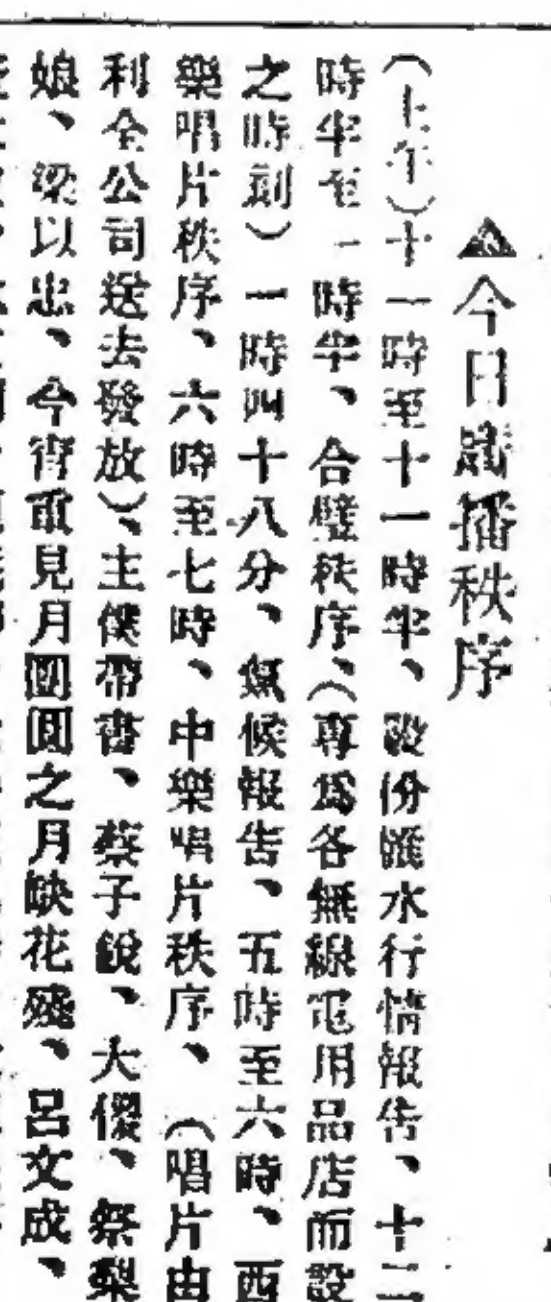 ▲今日廣播秩序
(上午)十一時至十一時半、股份匯水行情報告、十二
時半至一時半、合璧秩序、(專爲各無線電用品店而設
之時刻)一時四十八分、氣候報告、五時至六時、西
樂唱片秩序、六時至七時、中樂唱片秩序、(唱片由
利全公司送去發放)、主僕帶書、蔡子銳、大傻、祭梨
娘、梁以忠、今宵重見月團圓之月缺花殘、呂文成、